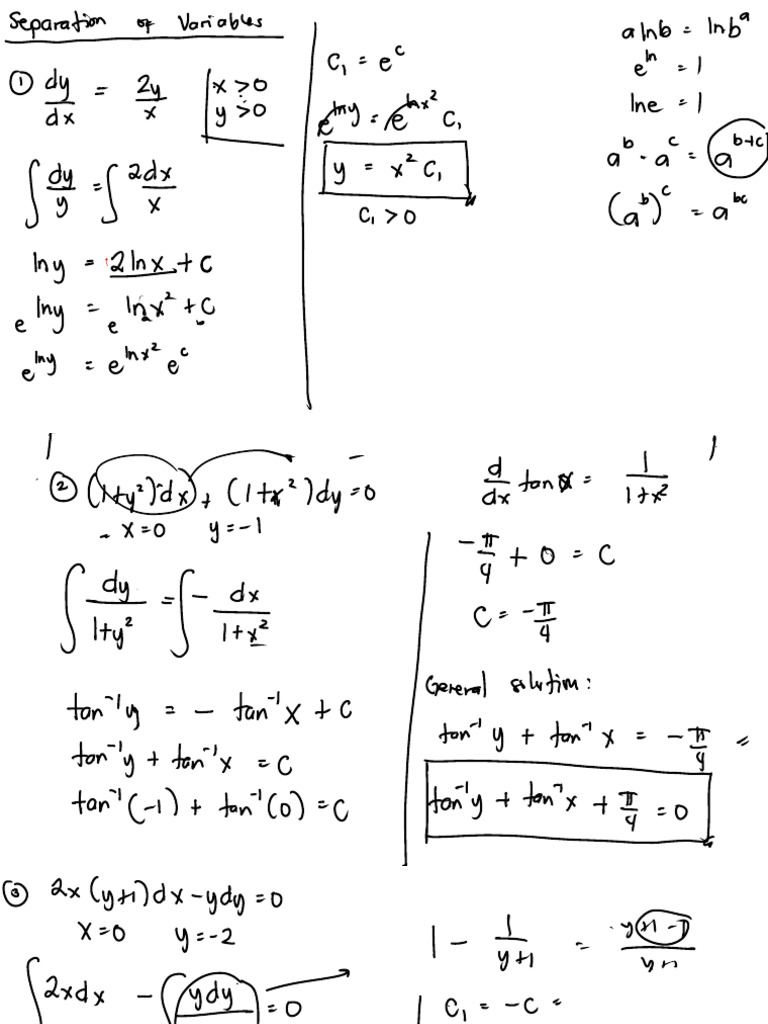 Separation of Variables
① dy/dx = 2y/x | x > 0
y > 0
∫ dy/y = ∫ 2dx/x
ln y = 2 ln x + C
e^(ln y) = e^(ln x² + C)
e^(ln y) = e^(ln x²) e^c
C₁ = e^c
e^(ln y) = e^(ln x²) C₁
y = x² C₁
C₁ > 0
a ln b = ln b^a
e^(ln) = 1
ln e = 1
a^b · a^c = a^(b+c)
(a^b)^c = a^(bc)
② (1+y²)dx + (1+x²)dy = 0
x = 0 y = -1
∫ dy/(1+y²) = ∫ - dx/(1+x²)
tan⁻¹y = - tan⁻¹x + C
tan⁻¹y + tan⁻¹x = C
tan⁻¹(-1) + tan⁻¹(0) = C
d/dx tan x = 1/(1+x²)
-π/4 + 0 = C
C = -π/4
General solution:
tan⁻¹y + tan⁻¹x = -π/4 =
tan⁻¹y + tan⁻¹x + π/4 = 0
③ 2x(y+1)dx - ydy = 0
x = 0 y = -2
∫ 2xdx - ∫ ydy = 0
1 - 1/(y+1) = (y+1-1)/(y+1)
C₁ = -C =